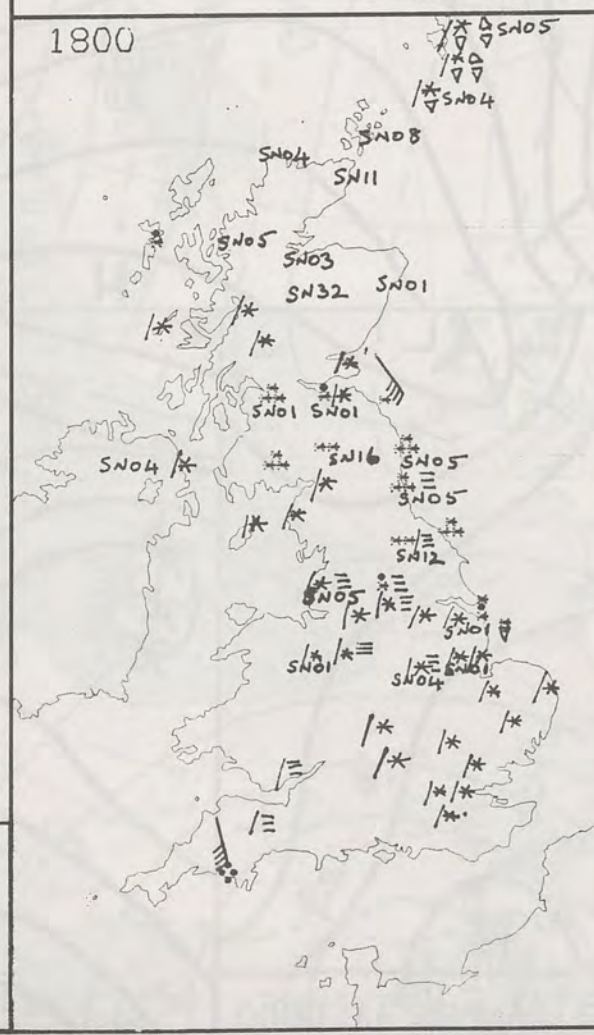 1800
SN05
SN04
SN08
SN04
SN11
SN05
SN03
SN32
SN01
SN01
SN01
SN04
SN16
SN05
SN05
SN12
SN05
SN01
SN01
SN04
SN01